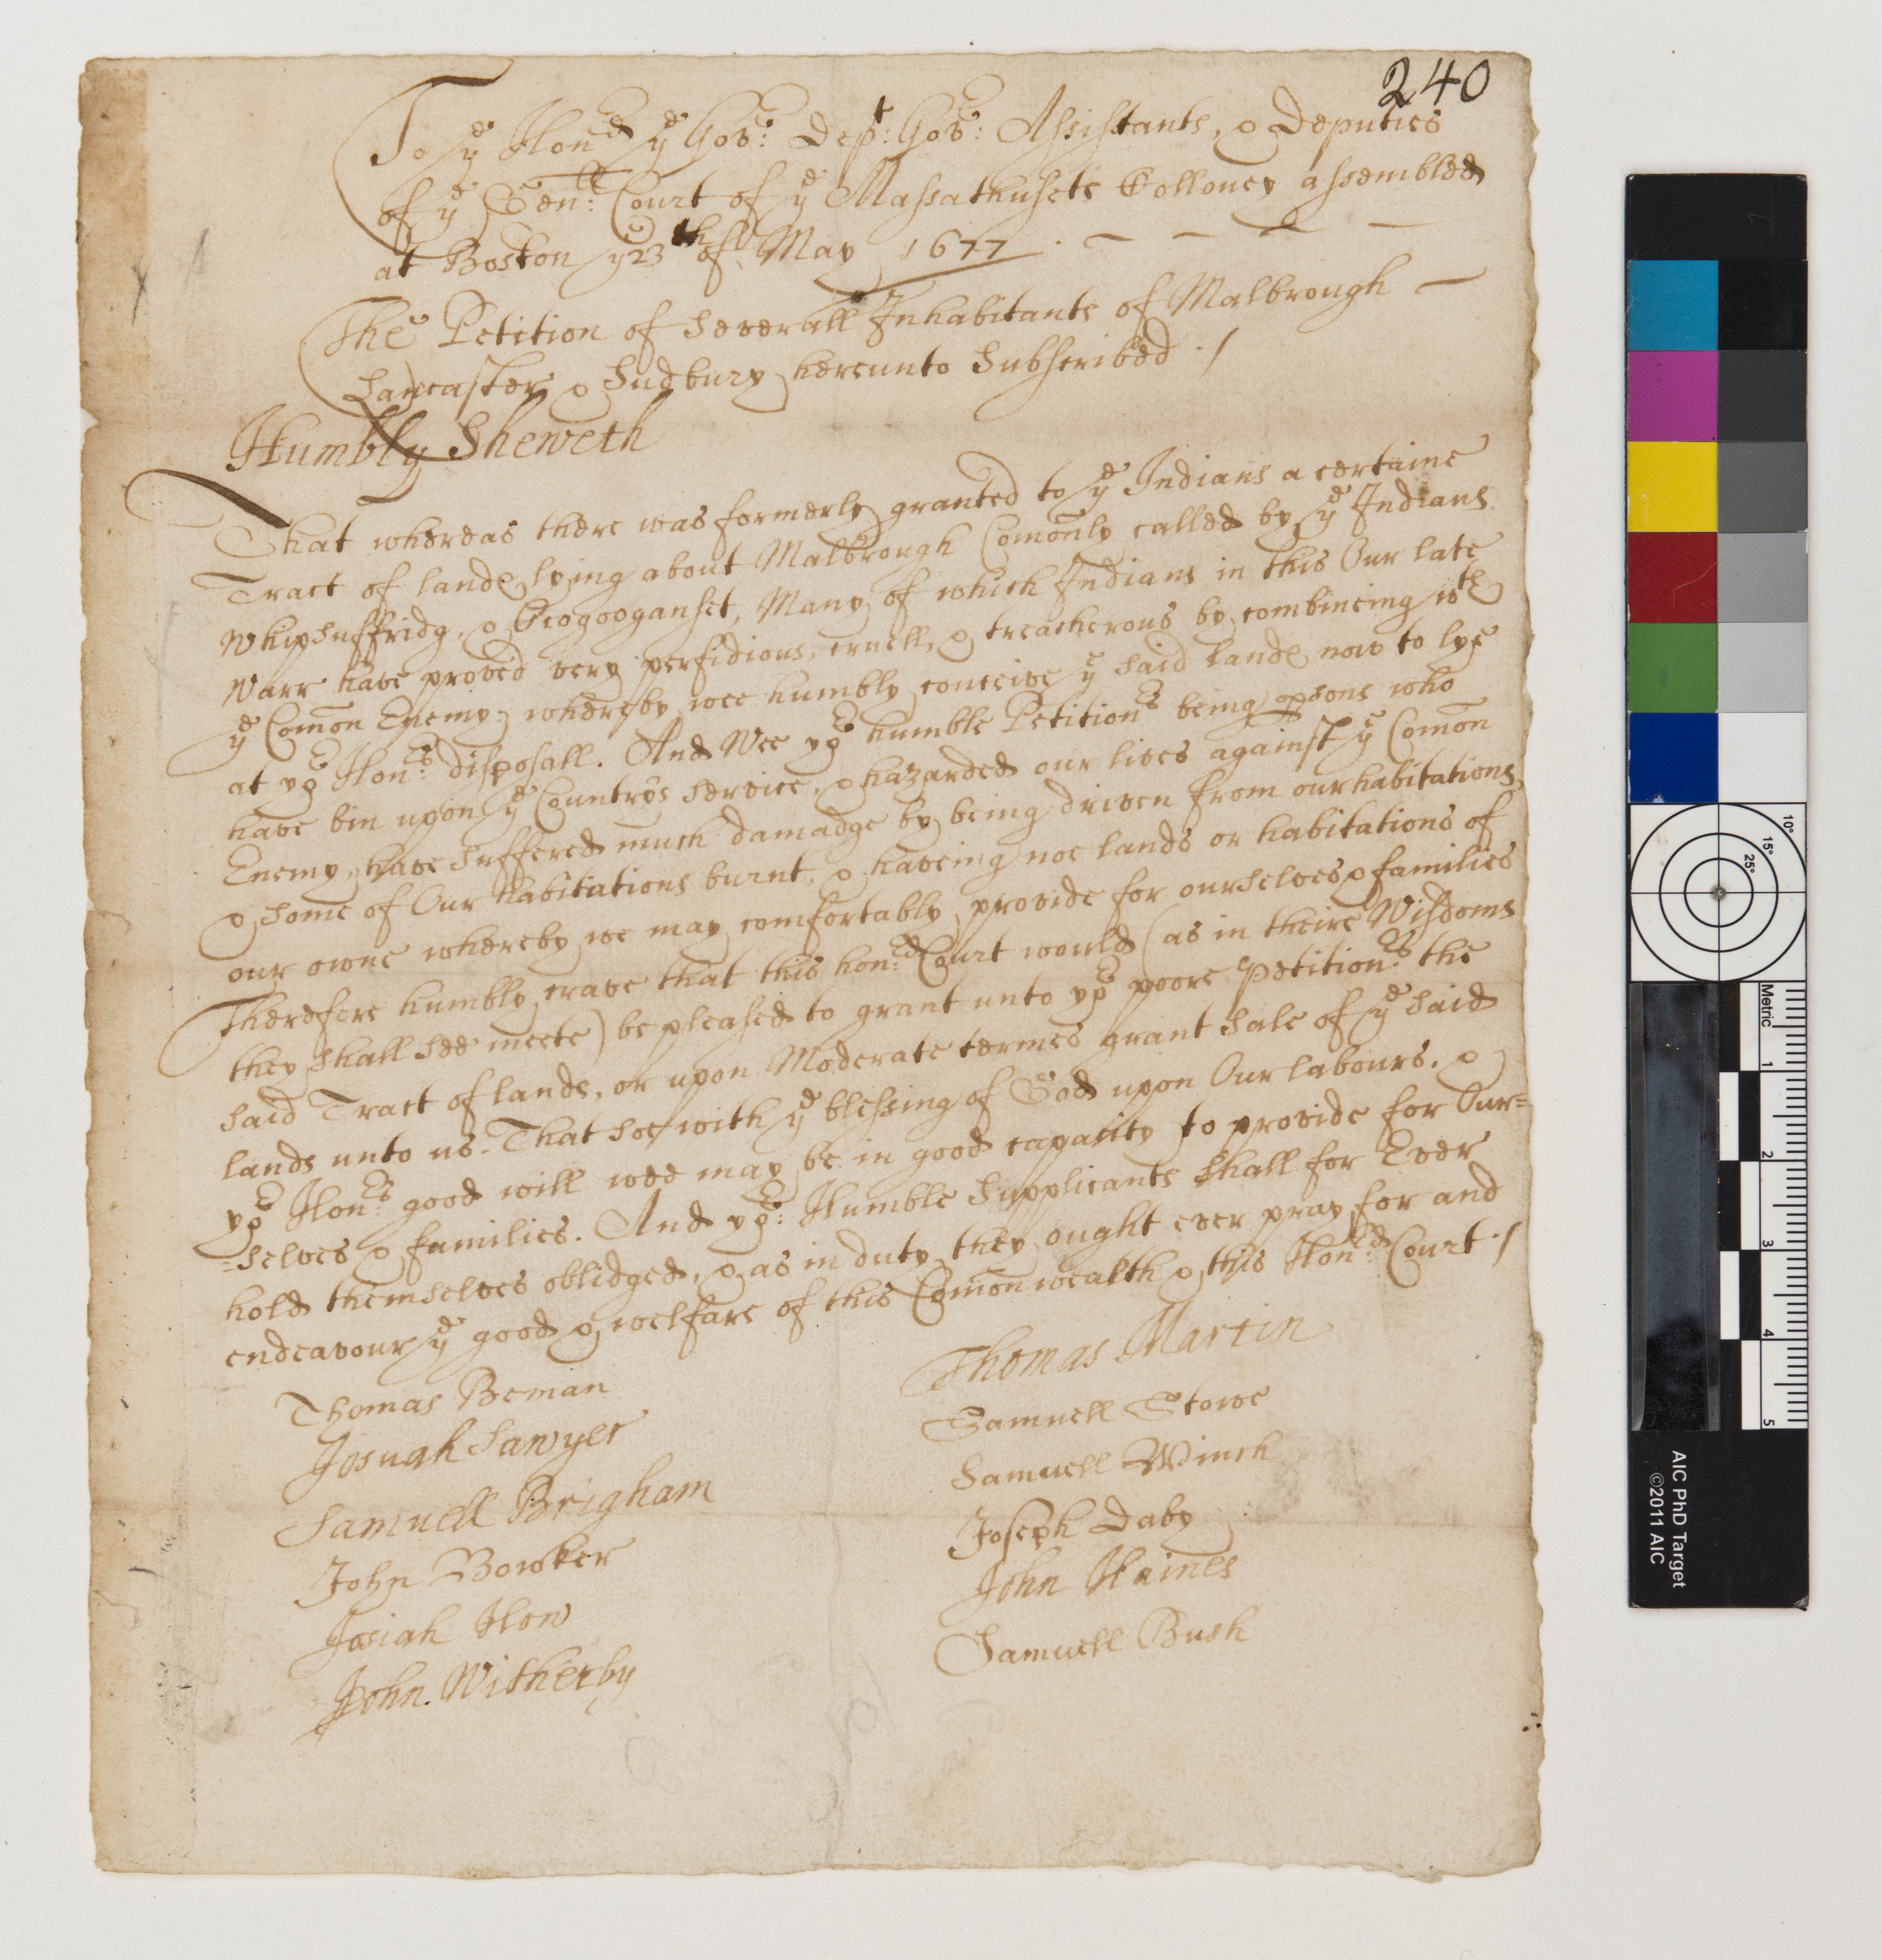 240
To ye Honed ye Gov:r Dept: Gov:r Assistants, & Deputies
of ye Gen:ll Court of ye Massathusets Colloney assembled
at Boston ye 23th of May 1677
The Petition of Severall Inhabitants of Malbrough
Lancaster & Sudbury hereunto Subscribed ./
Humbly Sheweth
That whereas there was formerly granted to ye Indians a certaine
Tract of lande lying about Malbrough Comonly called by ye Indians
Whipsuffridg, & Ocogooganset, Many of which Indians in this Our late
Warr have proved very perfidious, cruell, & treacherous by combineing wth
ye Comon Enemy; whereby wee humbly conceive ye said lande now to lye
at yor Hon:rs disposall. And Wee yor humble Petitionrs being psons who
have bin upon ye Countrys service, & hazarded our lives against ye Comon
Enemy, have suffered much damadge by being driven from our habitations,
& some of Our habitations burnt, & haveing noe lands or habitations of
our owne whereby we may comfortably provide for ourselves & families
Therefore humbly crave that this hon:ed Court would (as in theire Wisdoms
they shall see meete) be pleased to grant unto yor poore Petition:rs the
said Tract of lands, or upon Moderate termes grant sale of ye said
lands unto us. That soe with ye blessing of God upon Our labours, &
yor Hon:rs good will wee may be in good capacity to provide for Our=
=selves & families. And yor: Humble Supplicants shall for Ever
hold themselves oblidged, & as in duty they ought ever pray for and
endeavour ye good & welfare of this Comonwealth & this Hon:ed Court ./
Thomas Beman
Josuah Sawyer
Samuell Brigham
John Bowker
Josiah How
John. Witherby
Thomas Martin
Samuell Stowe
Samuell Winch
Joseph Daby
John Haines
Samuell Bush
Metric
1
2
3
4
5
10°
15°
25°
AIC PhD Target
©2011 AIC